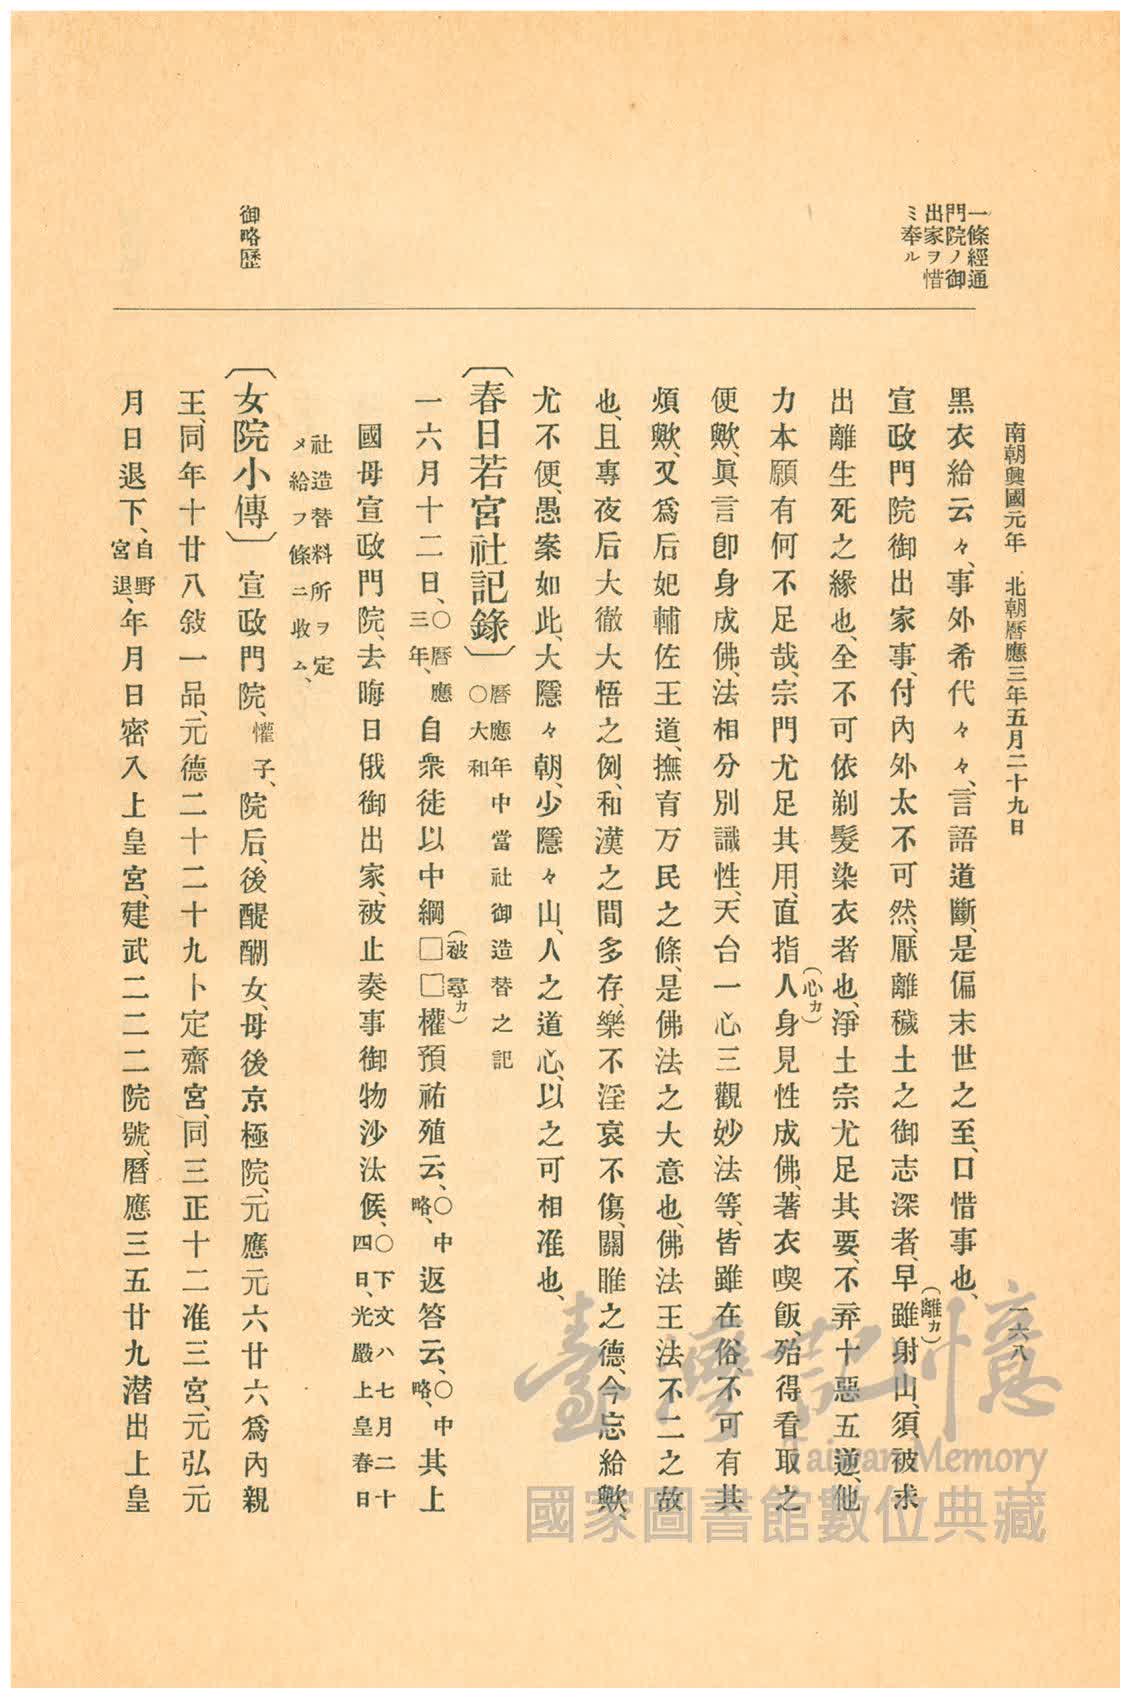 南朝興國元年 北朝曆應三年五月二十九日
一六八
一條經通
門院ノ御
出家ヲ惜
ミ奉ル
黑衣給云々、事外希代々々、言語道斷、是偏末世之至、口惜事也、
宣政門院御出家事、付內外太不可然、厭離穢土之御志深者、早雖(離カ)射山、須被求
出離生死之緣也、全不可依剃髮染衣者也、淨土宗尤足其要、不弃十惡五逆、他
力本願有何不足哉、宗門尤足其用、直指人身(心カ)見性成佛、著衣喫飯、殆得看取之
便歟、眞言卽身成佛、法相分別識性、天台一心三觀妙法等、皆雖在俗、不可有其
煩歟、又爲后妃輔佐王道、撫育万民之條、是佛法之大意也、佛法王法不二之故
也、且專夜后大徹大悟之例、和漢之間多存、樂不淫哀不傷、關雎之德、今忘給歟、
尤不便、愚案如此、大隱々朝、少隱々山、人之道心、以之可相准也、
〔春日若宮社記錄〕 曆應年中當社御造替之記
○大和
一六月十二日、○曆應三年、自衆徒以中綱□□(被尋カ)權預祐殖云、○中略、返答云、○中略、其上
國母宣政門院、去晦日俄御出家、被止奏事御物沙汰候、○下文ハ七月二十四日、光嚴上皇春日
社造替料所ヲ定
メ給フ條ニ收ム、
御略歷
〔女院小傳〕 宣政門院、懽子、院后、後醍醐女、母後京極院、元應元六廿六爲內親
王、同年十廿八敍一品、元德二十二十九卜定齋宮、同三正十二准三宮、元弘元
月日退下、自野宮退、年月日密入上皇宮、建武二二二院號、曆應三五廿九潛出上皇
臺灣記憶
Taiwan Memory
國家圖書館數位典藏